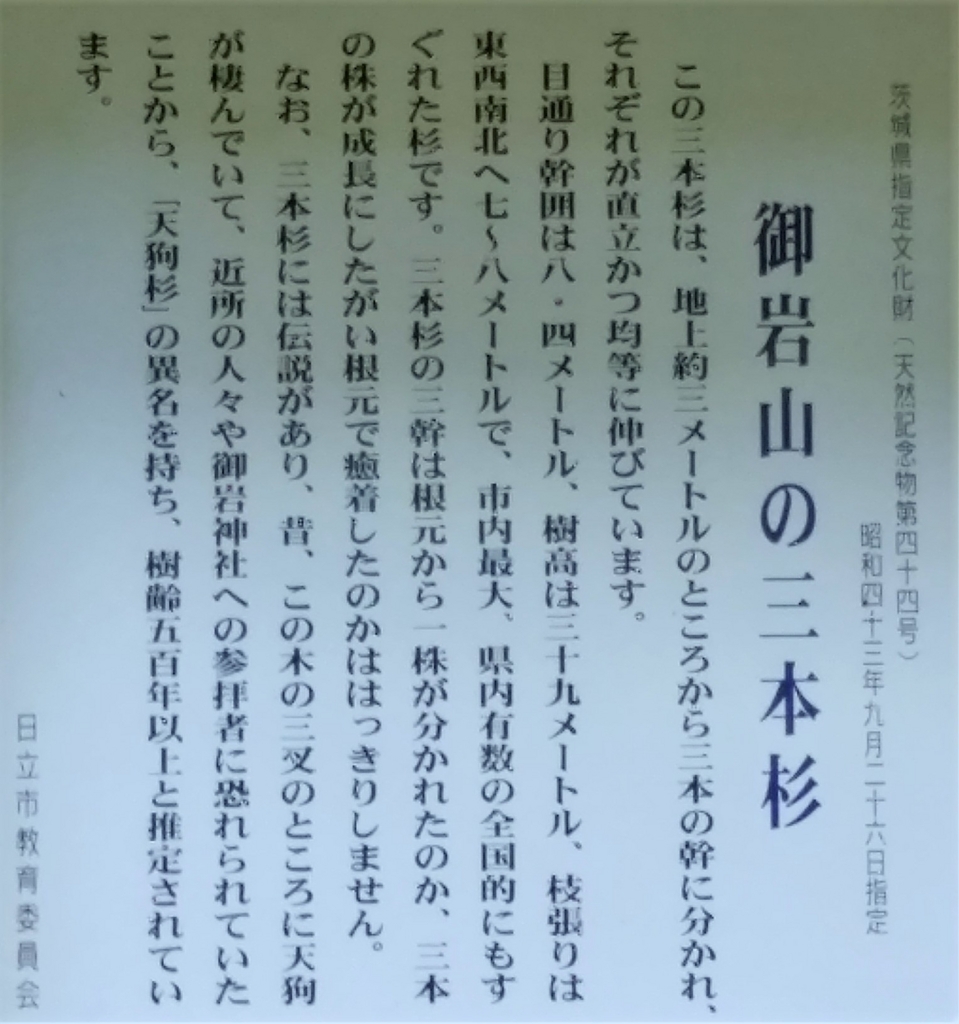 茨城県指定文化財（天然記念物第四十四号）
昭和四十三年九月二十六日指定
御岩山の三本杉
この三本杉は、地上約三メートルのところから三本の幹に分かれ、
それぞれが直立かつ均等に伸びています。
目通り幹囲は八・四メートル、樹高は三十九メートル、枝張りは
東西南北へ七〜八メートルで、市内最大、県内有数の全国的にもす
ぐれた杉です。三本杉の三幹は根元から一株が分かれたのか、三本
の株が成長にしたがい根元で癒着したのかははっきりしません。
なお、三本杉には伝説があり、昔、この木の三叉のところに天狗
が棲んでいて、近所の人々や御岩神社への参拝者に恐れられていた
ことから、「天狗杉」の異名を持ち、樹齢五百年以上と推定されてい
ます。
日立市教育委員会